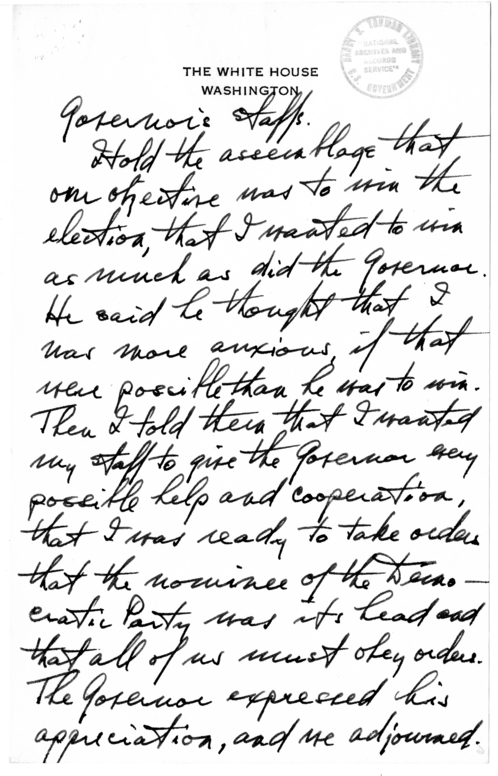 HARRY S. TRUMAN LIBRARY
NATIONAL
ARCHIVES AND
RECORDS
SERVICE
U.S. GOVERNMENT
THE WHITE HOUSE
WASHINGTON
Governor's staffs.
I told the assemblage that
our objective was to win the
election, that I wanted to win
as much as did the Governor.
He said he thought that I
was more anxious, if that
were possible than he was to win.
Then I told them that I wanted
my staff to give the Governor every
possible help and cooperation,
that I was ready to take orders
that the nominee of the Demo-
cratic Party was its head and
that all of us must obey orders.
The Governor expressed his
appreciation, and we adjourned.